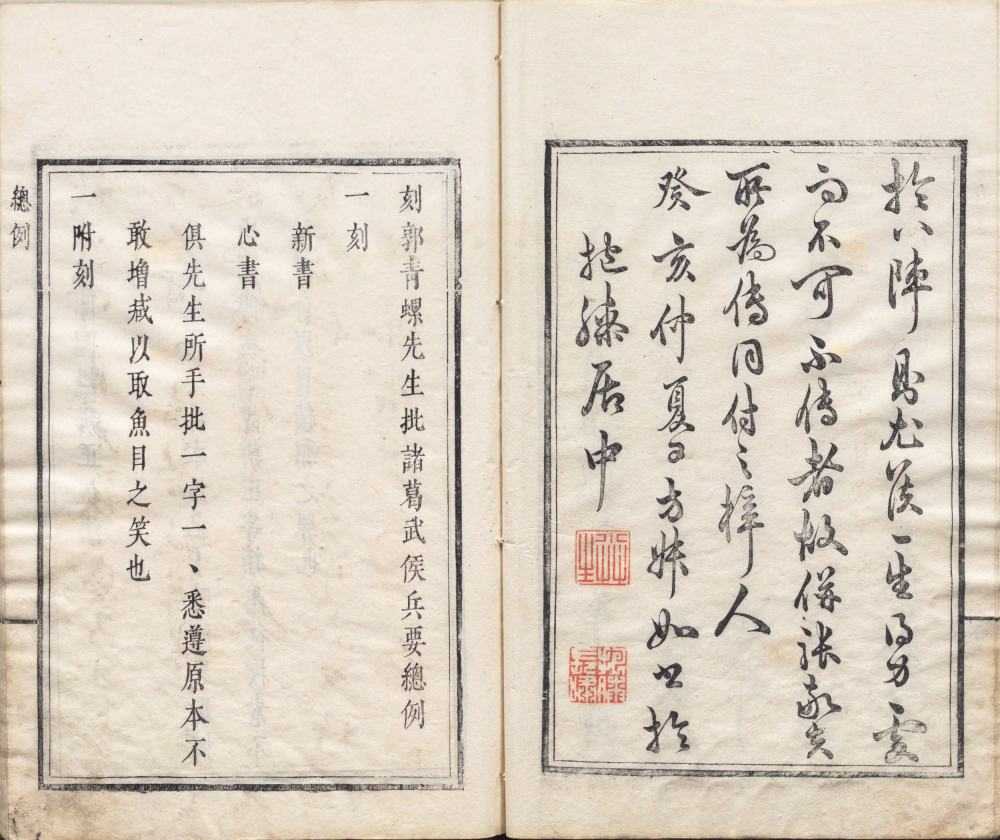 於八陣則尤侯一生得力處
而不可不傳者故併張敬夫
所為傳同付之梓人
癸亥仲夏日方如書於
抱膝居中
刻郭青螺先生批諸葛武侯兵要總例
一刻
新書
心書
俱先生所手批一字一丶悉遵原本不
敢增减以取魚目之笑也
一附刻
總例